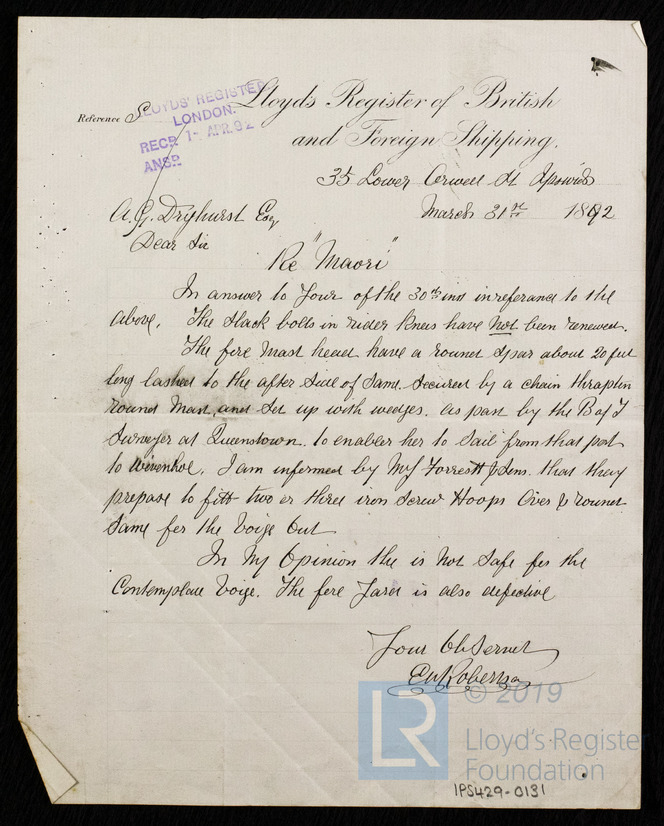 Lloyds Register of British
and Foreign Shipping.
Reference S
LLOYDS' REGISTER,
LONDON.
RECD 1- APR.92
ANSD
35 Lower Orwell St Ipswich
March 31st 1892
A.G. Dryhurst Esq
Dear Sir
Re "Maori"
In answer to Your of the 30th inst in referance to the
above. The Slack bolts in rider Knees have not been renewed.
The fore Mast head have a round Spar about 20 feet
long lashed to the after Side of Same. Secured by a chain
round Mast, and Set up with wedges. as past by the B of T
Surveyor at Queenstown. to enabler her to Sail from that port
to Wivenhoe. I am informed by Forrestt & Sons. that they
prepose to fitt two or three iron Screw Hoops Over & round
Same for the Voige Out
In My Opinion the is Not Safe for the
Contemplate Voige. The fore Yard is also defective
Your Ob Servent
Robertson
© 2019
LR
Lloyd's Register
Foundation
IPS429-0131